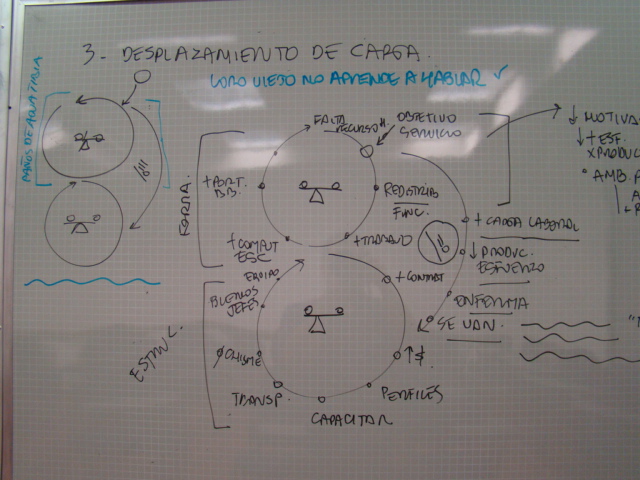 3- DESPLAZAMIENTO DE CARGA.
LORO VIEJO NO APRENDE A HABLAR ✓
PAÑOS DE AGUA TIBIA
FORMA.
FALTA
RECURSO H.
OBJETIVO
SERVICIO
+ PORT.
BB.
REDISTRIB
FUNC.
+ COMPUT
ESC
+ TRABAJO
+ CARGA LABORAL
↓ PRODUC.
ESFUERZO
ENFERMA
SE VAN.
↓ MOTIVA
↓ + ESF.
x PRODUC
• AMB.
ESTRUC.
EQUIPO
BUENOS
JEFES
+ CONTRAT
Ø CHISME
↑ $
TRANSP.
PERFILES
CAPACITAR